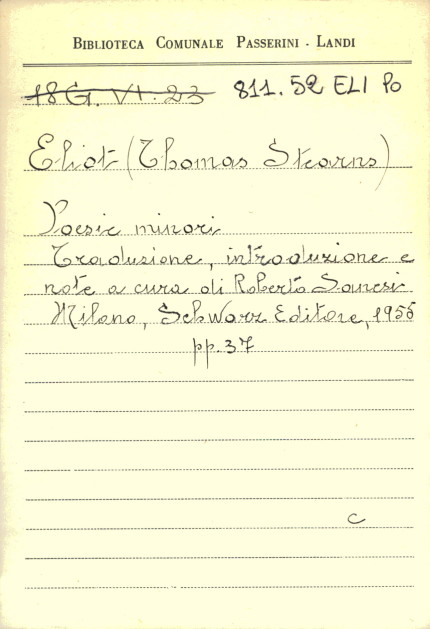 BIBLIOTECA COMUNALE PASSERINI - LANDI
18 G. VI. 23 811.52 ELI Po
Eliot (Thomas Stearns)
Poesie minori
Traduzione, introduzione e
note a cura di Roberto Sanesi
Milano, Schwarz Editore, 1955
pp. 37
c